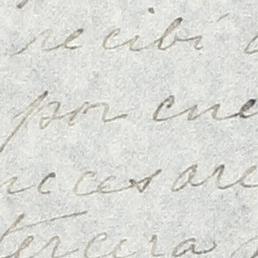 recibí
por cue
ccesore
tercera